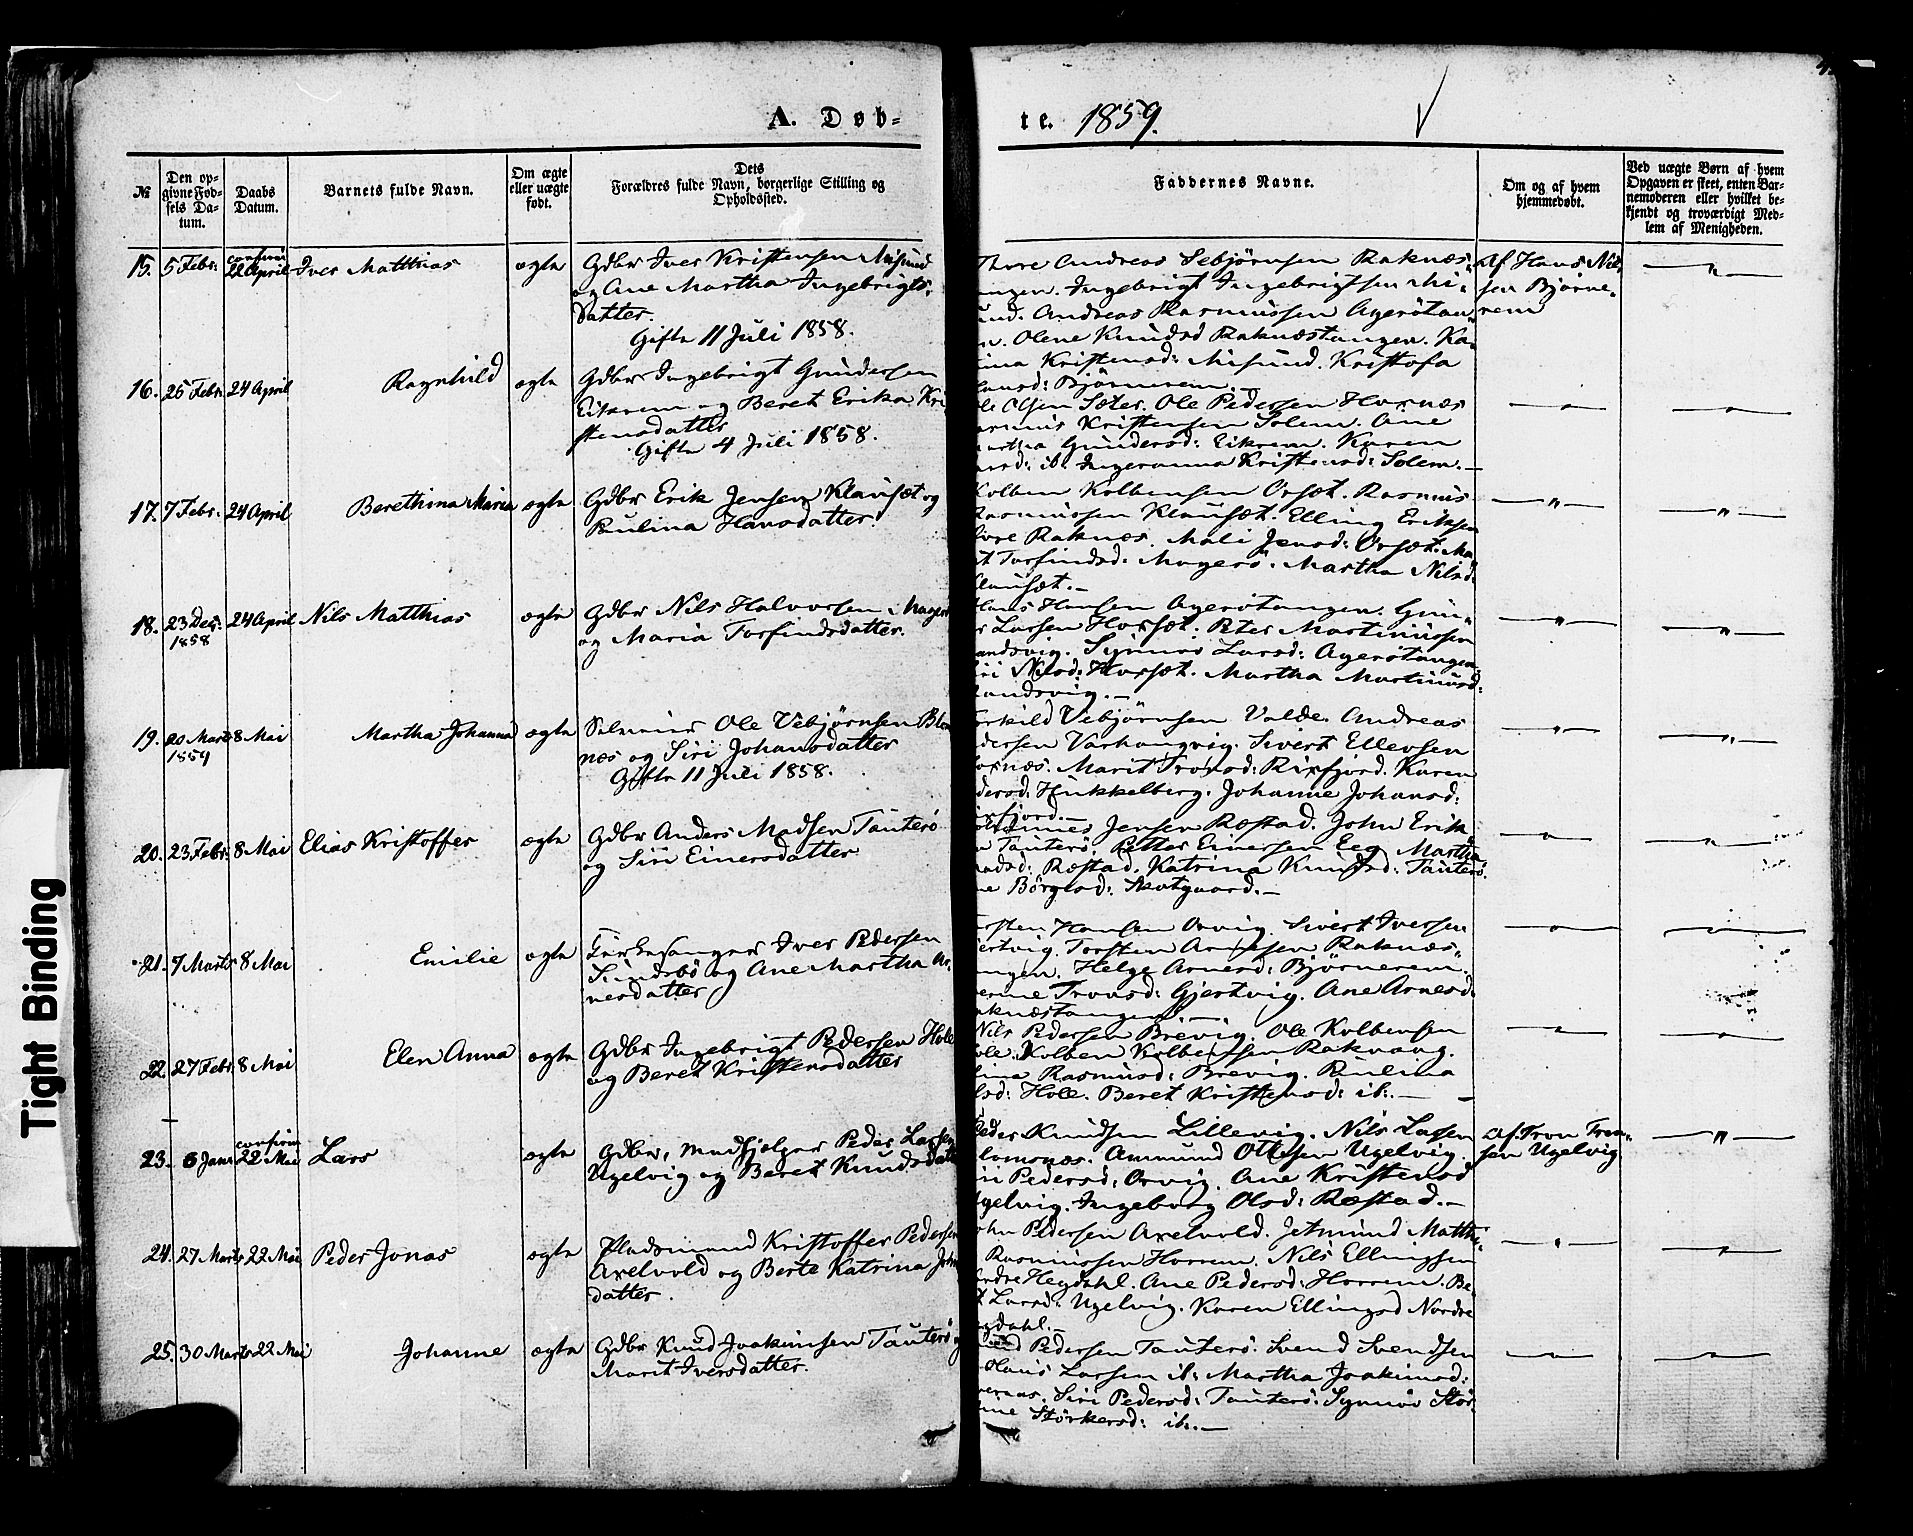 A. Døb-
te. 1859.
№
Den op-
givne Fød-
sels Da-
tum.
Daabs
Datum.
Barnets fulde Navn.
Om ægte
eller uægte
født.
Dets
Forældres fulde Navn, borgerlige Stilling og
Opholdssted.
Faddernes Navne.
Om og af hvem
hjemmedøbt.
Ved uægte Børn af hvem
Opgaven er skeet, enten Bar-
nemoderen eller hvilket be-
kjendt og troværdigt Med-
lem af Menigheden.
15. 5 Febr. confirm
22 April Iver Matthias ægte Gdbr Iver Kristensen Misund
og Ane Martha Ingebrigts-
datter.
Gifte 11 Juli 1858.
Thore Andreas Sebjörnsen Raknes-
angen. Ingebrigt Ingebrigtsen Mi-
und. Andreas Rasmussen Agerötan
n. Olene Knudsd Raknestangen. Ka-
ina Kristensd: Misund. Kristofa
ansd: Björnerem.
Af Hans Nil-
sen Bjorne-
rem
16. 25 Febr. 24 April Ragnhild ægte Gdbr Ingebrigt Gundersen
Eikrem og Beret Erika Kri
stensdatter
Gifte 4 Juli 1858.
le Olsen Sæter. Ole Pedersen Hornes
asmus Kristensen Solem. Ane
artha Gundersd: Eikrem. Karen
arsd: ib. Ingeranna Kristensd: Solem.
17. 7 Febr. 24 April Berethina Maria ægte Gdbr Erik Jensen Klauset og
Paulina Hansdatter.
Kolben Kolbensen Orset. Rasmus
Rasmussen Klauset. Elling Eriksen
Raknes. Mali Jensd: Orset. Ma-
t Torfindsd: Magerö. Martha Nilsd:
Klauset.
18. 23 Dec.
1858 24 April Nils Matthias ægte Gdbr Nils Halvorsen Magerö
og Maria Torfindsdatter.
Hans Hansen Agerötangen. Gun-
r Larsen Horset. Peter Martinussen
andsvig. Synnev Larsd: Agerötangen.
iri Nilsd: Horset. Martha Martinusd:
andsvig.
19. 20 Marts
1859 8 Mai Martha Johanna ægte Selveier Ole Vebjørnsen
nes og Siri Johansdatter
Gifte 11 Juli 1858.
orkild Vebjørnsen Valde. Andreas
dersen Varhaugvig. Sivert Ellevsen
ornes. Marit Tronsd: Rixfjord. Karen
dersd: Hukkelberg. Johanne Johansd:
ixfjord.
20. 23 Febr. 8 Mai Elias Kristoffer ægte Gdbr Anders Madsen Tauterö
og Siri Einersdatter
annes Jensen Restad. John Erik
n Tauterö. Petter Einersen Eeg. Martha
adsd: Restad. Katrina Knudsd: Tauterö.
ne Börgesd: Skotgaard.
21. 7 Marts 8 Mai Emilie ægte Kirkesanger Iver Pedersen
Sundsbö og Ane Martha Ar-
nesdatter
orsten Hansen Orvig. Sivert Iversen
Gjertvig. Torsten Arnesen Raknes-
angen. Helge Arnesd: Björnerem.
erine Tronsd: Gjertvig. Ane Arnesd:
aknestangen
22. 27 Febr. 8 Mai Elen Anna ægte Gdbr Ingebrigt Pedersen Hole
og Beret Kristensdatter
Nils Pedersen Brevig. Ole Kolbensen
ole. Kolben Kolbensen Raknang.
line Rasmusd: Brevig. Paulina
lsd: Hole. Beret Kristensd: ib:.
23. 6 Janr confirm
22 Mai Lars ægte Gdbr, medhjelper Peder Larsen
Ugelvig og Beret Knudsdatt
Peder Knudsen Lillevig. Nils Larsen
lomsnes. Ammund Ottesen Ugelvig.
iri Pedersd: Orvig. Ane Kristensd
Ugelvig. Ingeborg Olsd: Restad.
Af Tron Tron-
sen Ugelvig
24. 27 Marts 22 Mai Peder Jonas ægte Pladsmand Kristoffer Pedersen
Axelvold og Berte Katrina Joh
datter.
ohn Pedersen Axelvold. Jetmund Matthi-
Rasmussen Horrem. Nils Ellingsen
ordre Hegdahl. Ane Pedersd: Horrem. Be-
t Larsd: Ugelvig. Karen Ellingsd Nordre
egdahl.
25. 30 Marts 22 Mai Johanne ægte Gdbr Knud Joakimsen Tauterö og
Marit Iversdatter.
Pedersen Tauterö. Svend Svendsen
Olaus Larsen ib: Martha Joakimsd:
Siri Pedersd: Tauterö. Synnöv Stör-
ine Störkersd: ib:.
Tight Binding